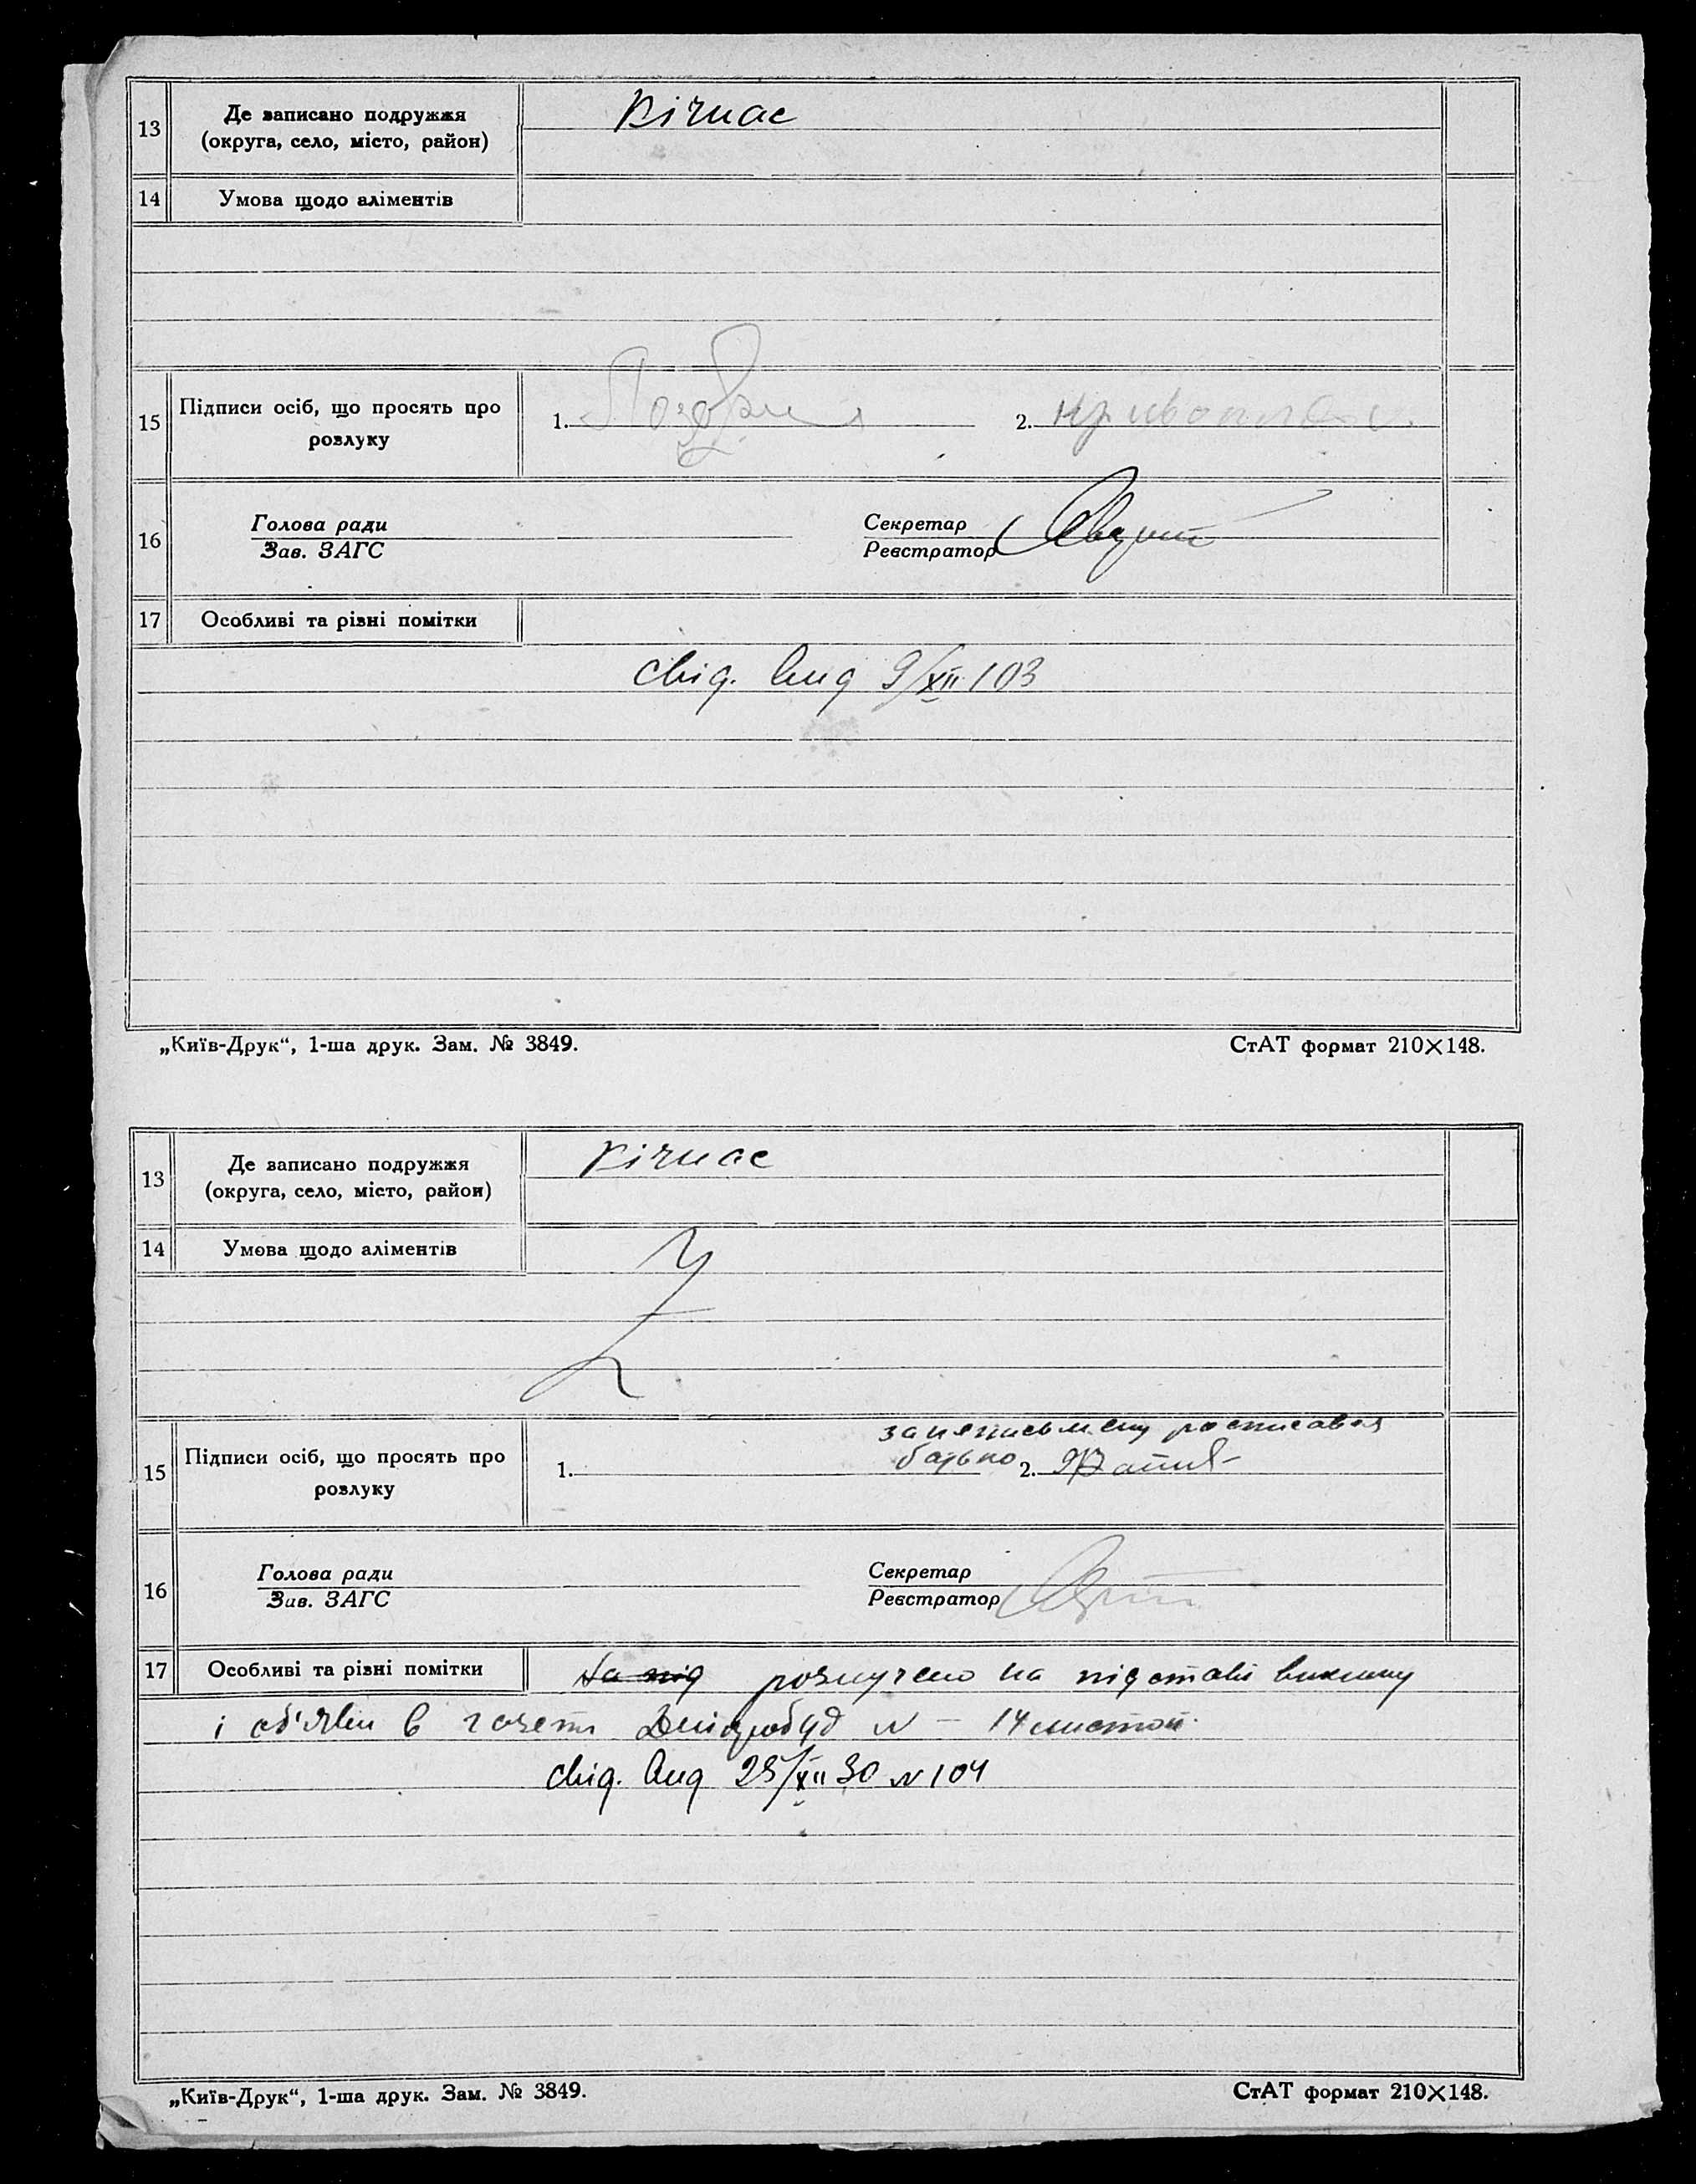 13
Де записано подружжя
(округа, село, місто, район)
Кічкас
14
Умова щодо аліментів
15
Підписи осіб, що просять про
розлуку
1.
2.
16
Голова ради
Зав. ЗАГС
Секретар
Реєстратор
17
Особливі та різні помітки
свід. вид 9/XII 103
„Київ-Друк“, 1-ша друк. Зам. № 3849.
СтАТ формат 210×148.
13
Де записано подружжя
(округа, село, місто, район)
Кічкас
14
Умова щодо аліментів
Z
15
Підписи осіб, що просять про
розлуку
1.
батько
2.
16
Голова ради
Зав. ЗАГС
Секретар
Реєстратор
17
Особливі та різні помітки
На під розлучено на підставі виклику
і об'яви в газеті Дніпробуд N – 14
свід. вид 25/XII 30 N 104
„Київ-Друк“, 1-ша друк. Зам. № 3849.
СтАТ формат 210×148.